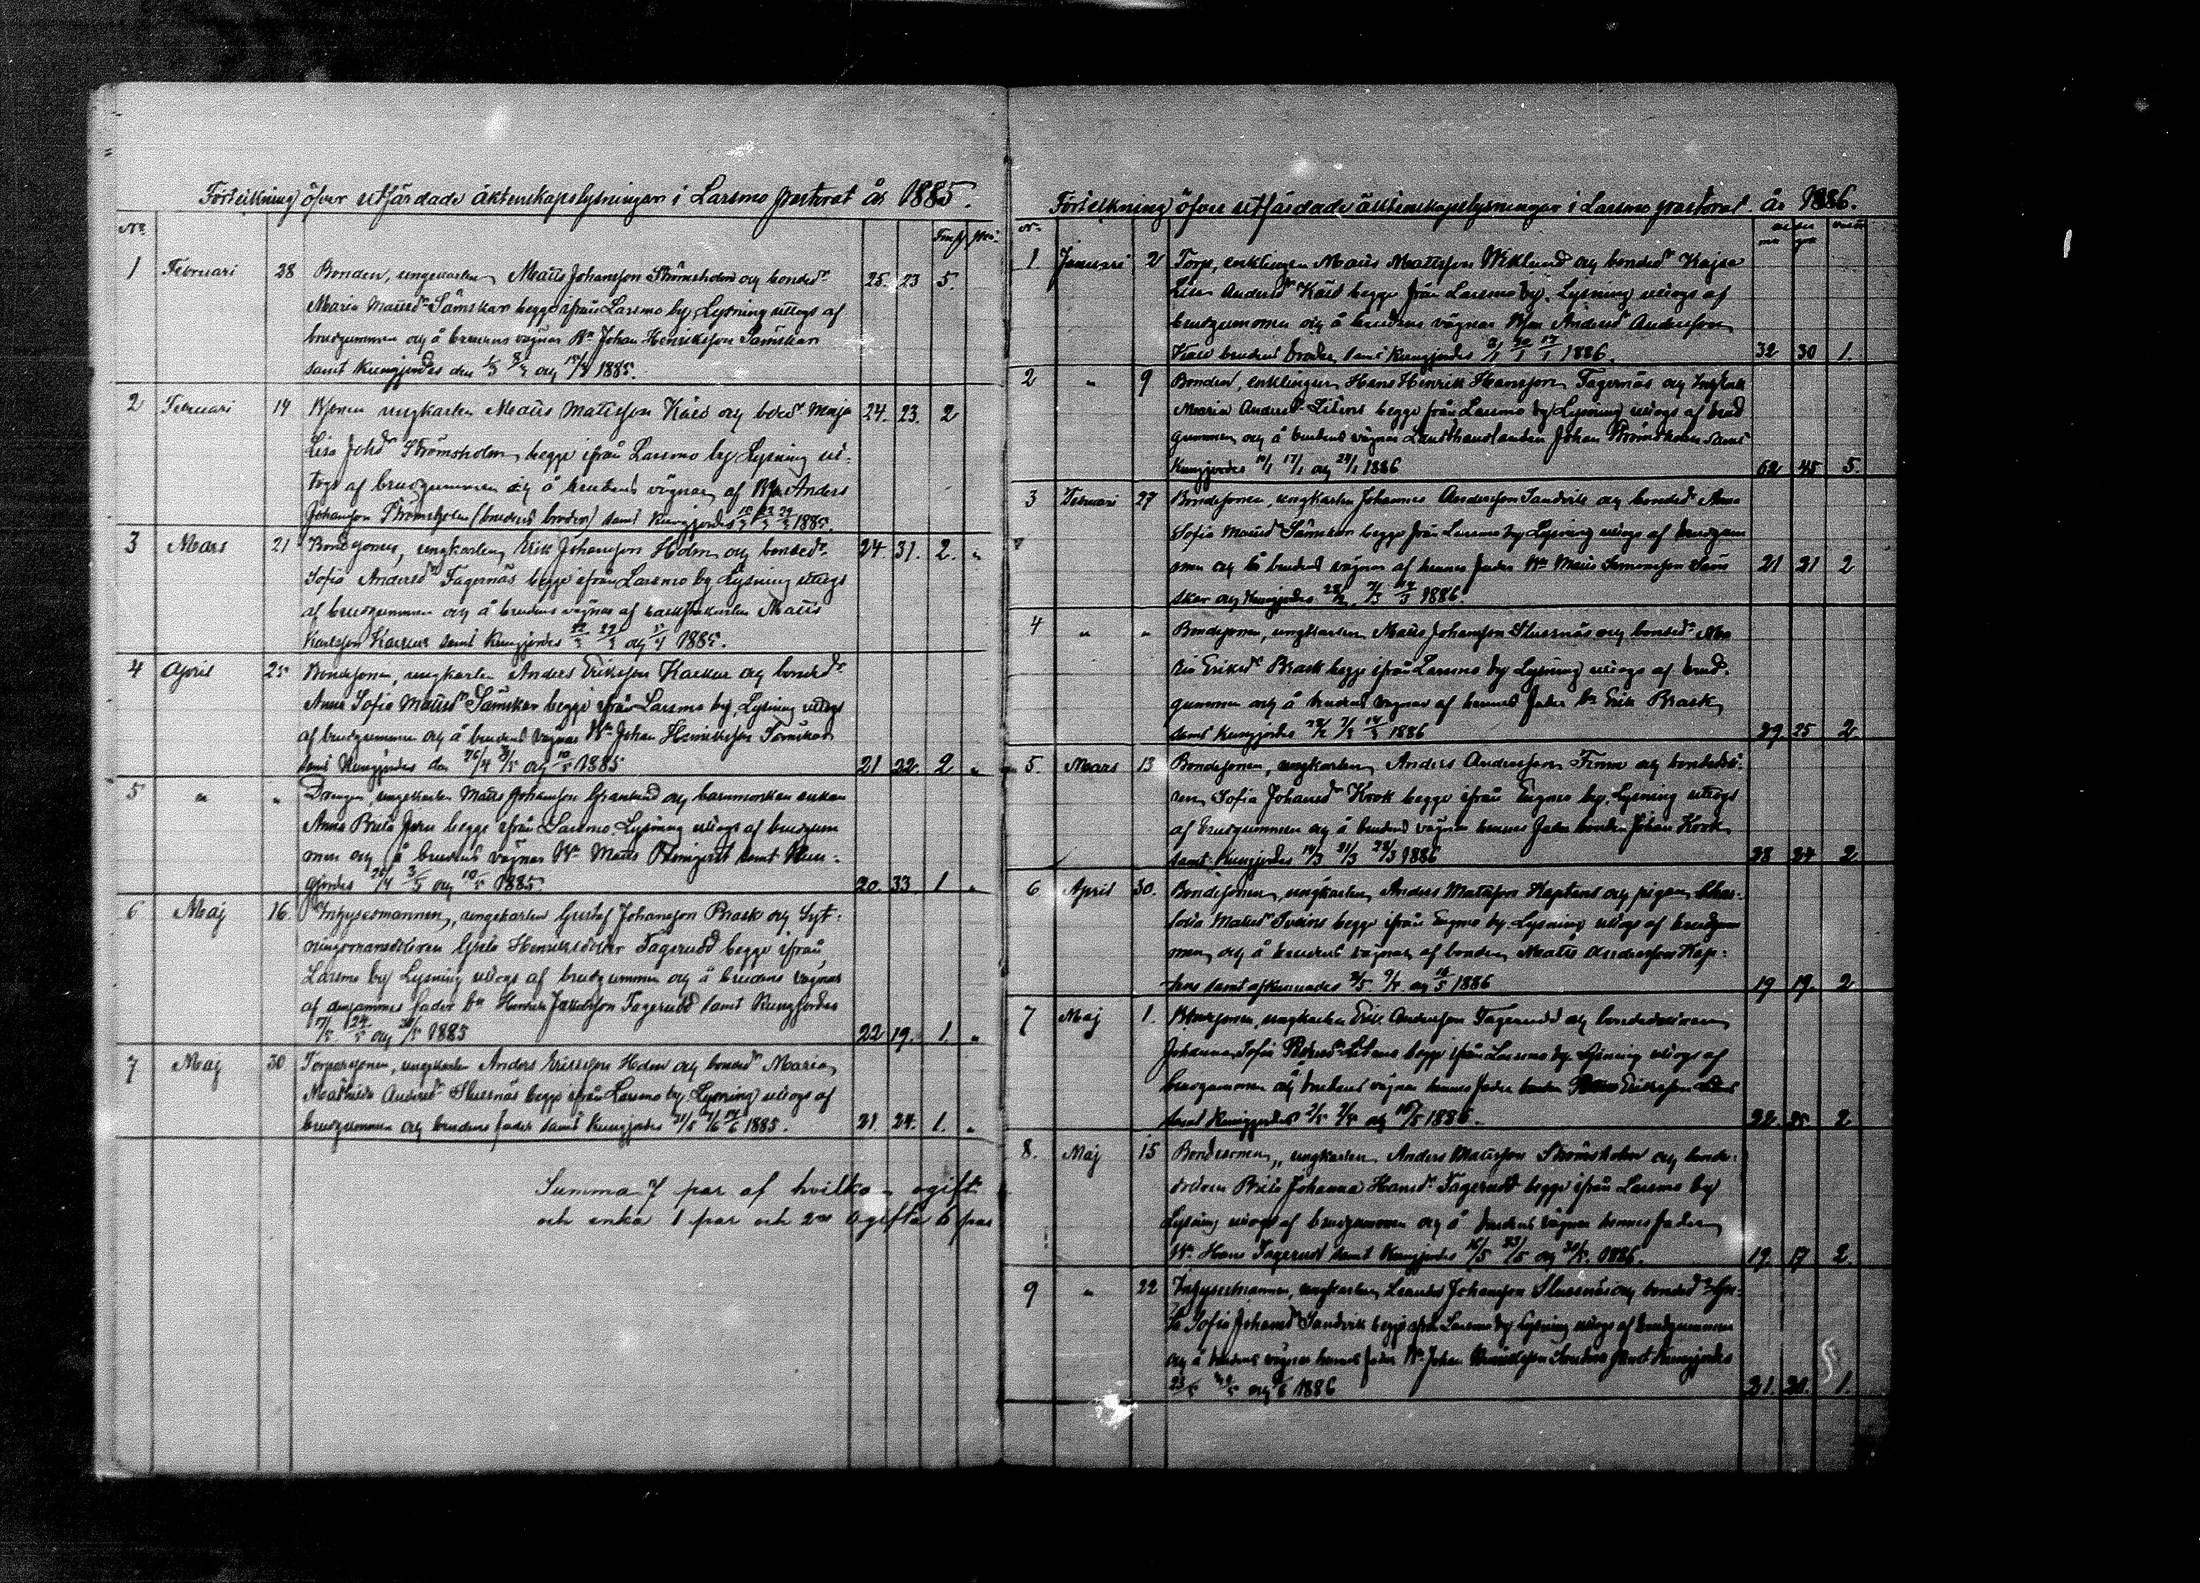 Förteckning öfver utfärdade äktenskapslysningar i Larsmo pastorat år 1885.
No
1 Februari 28 Bonden, ungkarlen Matts Johansson Strömsholm och bonded.r 25. 23 5.
Maria Mattsd.r Sämskar begge ifrån Larsmo by, Lysning uttogs af
brudgummen och å brudens vägnar Bn Johan Henriksson Sämskar
samt kungjordes den 1/3 8/3 och 15/3 1885.
2 Februari 14 ungkarlen Matts Mattsson Käld och bd.r Maja 24. 23. 2
Lisa Johd.r Strömsholm begge ifrån Larsmo by Lysning ut-
togs af brudgummen och å brudens vägnar af Anders
Johansson Strömsholm (brudens broder) samt kungjordes 1885.
3 Mars 21 Bondesonen, ungkarlen Erik Johansson Holm och bonded.r 24. 31. 2. "
Sofia Andersd.r Fagernäs begge ifrån Larsmo by Lysning uttogs
af brudgummen och å brudens vägnar af Matts
Karlsson samt kungjordes 22/3 29/3 och 5/4 1885.
4 April 25 Bondesonen, ungkarlen Anders Eriksson och bonded.r
Anna Sofia Mattsd.r Sämskar begge ifrån Larsmo by, Lysning uttogs
af brudgummen och å brudens vägnar Bn Johan Henriksson Sämskar
samt kungjordes den 26/4 3/5 och 10/5 1885 21 22. 2 "
5 " " Drengen, ungkarlen Matts Johansson Granlund och barnmorskan enkan
Anna Brita begge ifrån Larsmo. Lysning uttogs af brudgum
men och å brudens vägnar Bn Matts samt kun-
gjordes 26/4 3/5 och 10/5 1885 20. 33 1 "
6 Maj 16. Inhysesmannen, ungkarlen Gustaf Johansson Brask och Syt-
ningsmansdottren Greta Henriksdotter Fagerudd begge ifrån
Larsmo by Lysning uttogs af brudgummen och å brudens vägnar
af densammes fader bn Henrik Jakobsson Fagerudd samt kungjordes
17/5 24/5 och 31/5 1885 22 19. 1. "
7 Maj 30 Torparesonen, ungkarlen Anders Eriksson Holm och bonded.r Maria
Mathilda Andersd.r Slussnäs begge ifrån Larsmo by, Lysning uttogs af
brudgummen och brudens fader samt kungjordes 31/5 7/6 14/6 1885. 21 24. 1. "
Summa 7 par af hvilka ogift
och enka 1 par och ogifta 6 par
Förteckning öfver utfärdade äktenskapslysningar i Larsmo pastorat år 1886.
No
1 Januari 2 Torp, enklingen Matts Mattsson Wiklund och bonded.r Kajsa
Lisa Andersd.r Käld begge från Larsmo by. Lysning uttogs af
brudgummen och å brudens vägnar Anders Andersson
Käld brudens broder, samt kungjordes 3/1 10/1 17/1 1886. 32 30 1.
2 " 9 Bonden, enklingen Hans Henrik Hansson Fagernäs och
Maria Andersd.r begge från Larsmo by Lysning uttogs af brud
gummen och å brudens vägnar Landthandlanden Johan Strömsholm samt
kungjordes 10/1 17/1 och 24/1 1886 62 45 5.
3 Februari 27 Bondesonen, ungkarlen Johannes Andersson Sandvik och bonded.r Anna
Sofia Mattsd.r Sämskar begge från Larsmo by Lysning uttogs af brudgum
men och å brudens vägnar af hennes fader Bn Matts Simonsson Säm 21 21 2
skar och kungjordes 28/2 7/3 14/3 1886.
4 " " Bondesonen, ungkarlen Matts Johansson Slussnäs och bonded.r Ma
ria Eriksd.r Brask begge ifrån Larsmo by Lysning uttogs af brud-
gummen och å brudens vägnar af hennes fader bn Erik Brask
samt kungjordes 28/2 7/3 14/3 1886 29 25 2
5. Mars 13 Bondesonen, ungkarlen Anders Andersson Finne och bondedot-
ren Sofia Johansd.r Krok begge ifrån Eugmo by. Lysning uttogs
af brudgummen och å brudens vägnar hennes fader bonden Johan Krok
samt kungjordes 14/3 21/3 28/3 1886 28 24 2
6 April 30. Bondesonen, ungkarlen Anders Mattsson Kaptens och pigan Char-
lotta Mattsd.r begge ifrån Eugmo by. Lysning uttogs af brudgum
men och å brudens vägnar af bonden Matts Andersson Kap-
tens samt afkunnades 2/5 9/5 och 16/5 1886 19 19. 2
7 Maj 1. ungkarlen Erik Andersson Fagerudd och bondedottren
Johanna Sofia begge ifrån Larsmo by. Lysning uttogs af
brudgummen och brudens vägnar hennes fader bonden Eriksson
samt kungjordes 2/5 9/5 och 16/5 1886. 22. 25 2
8. Maj 15 Bondesonen, ungkarlen Anders Mattsson Strömsholm och bonde-
dottren Brita Johanna Hansd.r Fagerudd begge ifrån Larsmo by
Lysning uttogs af brudgummen och å brudens vägnar hennes fader
Bn Hans Fagerudd samt kungjordes 16/5 23/5 och 30/5. 1886. 19. 17 2.
9 " 22 Inhysesmannen, ungkarlen Leander Johansson Slussnäs och bonded.r Gre-
ta Sofia Johansd.r Sandvik begge ifrån Larsmo by Lysning uttogs af brudgummen
och å brudens vägnar hennes fader Bn Johan samt kungjordes
23/5 30/5 och 6/6 1886 21. 21. 1.